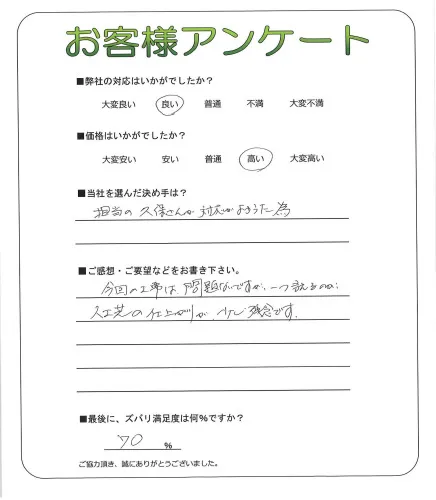 お客様アンケート
■弊社の対応はいかがでしたか？
大変良い 良い 普通 不満 大変不満
■価格はいかがでしたか？
大変安い 安い 普通 高い 大変高い
■当社を選んだ決め手は？
担当の久保さんが対応がよかった為
■ご感想・ご要望などをお書き下さい。
今回の工事は、問題ないですが、一つ言えるのは、
人工芝の仕上がりが、少し残念です。
■最後に、ズバリ満足度は何%ですか？
70 %
ご協力頂き、誠にありがとうございました。